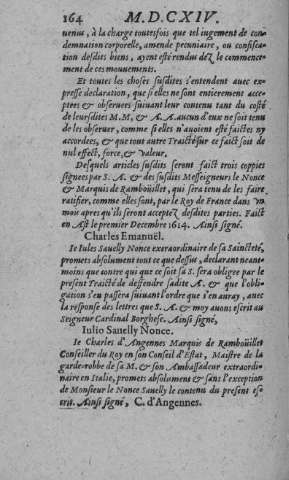 164 M.D.CXIV.
uenus, à la charge toutesfois que tel iugement de con-
demnation corporelle, amende pecuniaire, ou confisca-
tion desdits biens, ayent esté rendus dez le commence-
ment de ces mouuements.
Et toutes les choses susdites s'entendent auec ex-
presse declaration, que si elles ne sont entierement acce-
ptees & obseruees suiuant leur contenu tant du costé
de leursdites M.M, & A. A aucun d'eux ne soit tenu
de les obseruer, comme si elles n'auoient esté faictes ny
accordees, & que tout autre Traicté sur ce faict soit de
nul effect, force, & valeur.
Desquels articles susdits seront faict trois coppies
signees par S. A. & des susdits Messeigneurs le Nonce
& Marquis de Ramboüillet, qui sera tenu de les faire
ratifier, comme elles sont, par le Roy de France dans vn
mois apres qu'ils seront acceptez desdites parties. Faict
en Ast le premier Decembre 1614. Ainsi signé.
Charles Emanuël.
Ie Iules Sauelly Nonce extraordinaire de sa Saincteté,
promets absolument tout ce que dessus, declarant neant-
moins que contre qui que ce soit sa S. sera obligee par le
present Traicté de deffendre sadite A. & que l'obli-
gation s'en passera suiuant l'ordre que i'en auray, auec
la response des lettres que S. A. & moy auons escrit au
Seigneur Cardinal Borghese. Ainsi signé,
Iulio Sauelly Nonce.
Ie Charles d'Angennes Marquis de Ramboüillet
Conseiller du Roy en son Conseil d'Estat, Maistre de la
garde-robbe de sa M. & son Ambassadeur extraordi-
naire en Italie, promets absolument & sans l'exception
de Monsieur le Nonce Sauelly le contenu du present es-
crit. Ainsi signé, C. d'Angennes.